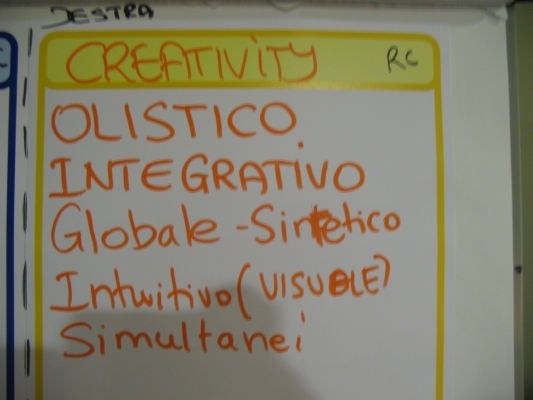 DESTRA
CREATIVITY RC
OLISTICO
INTEGRATIVO
Globale - Sintetico
Intuitivo (VISUALE)
Simultanei